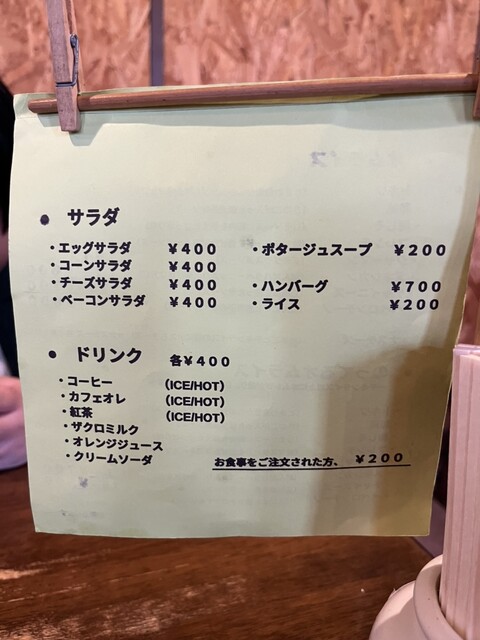 ● サラダ
・エッグサラダ ￥４００
・コーンサラダ ￥４００
・チーズサラダ ￥４００
・ベーコンサラダ ￥４００
・ポタージュスープ ￥２００
・ハンバーグ ￥７００
・ライス ￥２００
● ドリンク 各￥４００
・コーヒー （ICE/HOT）
・カフェオレ （ICE/HOT）
・紅茶 （ICE/HOT）
・ザクロミルク
・オレンジジュース
・クリームソーダ
お食事をご注文された方、 ￥２００